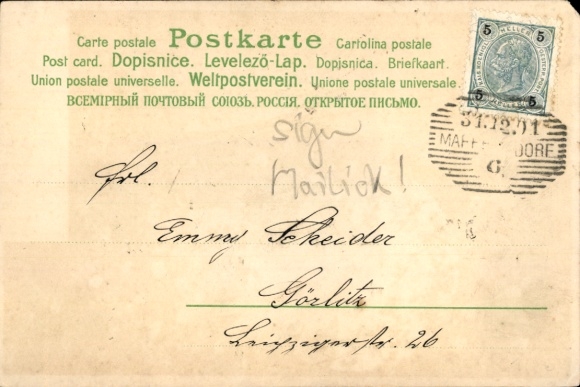 Carte postale Postkarte Cartolina postale
Post card. Dopisnice. Levelező-Lap. Dopjsnica. Briefkaart.
Union postale universelle. Weltpostverein. Unione postale universale.
ВСЕМІРНЫЙ ПОЧТОВЫЙ СОЮЗЪ. РОССІЯ. ОТКРЫТОЕ ПИСЬМО.
5 5
5 5
31.12.01
MAFFE DORF
6
sign
Mailick!
Frl.
Emmy Scheider
Görlitz
Leipzigerstr. 26